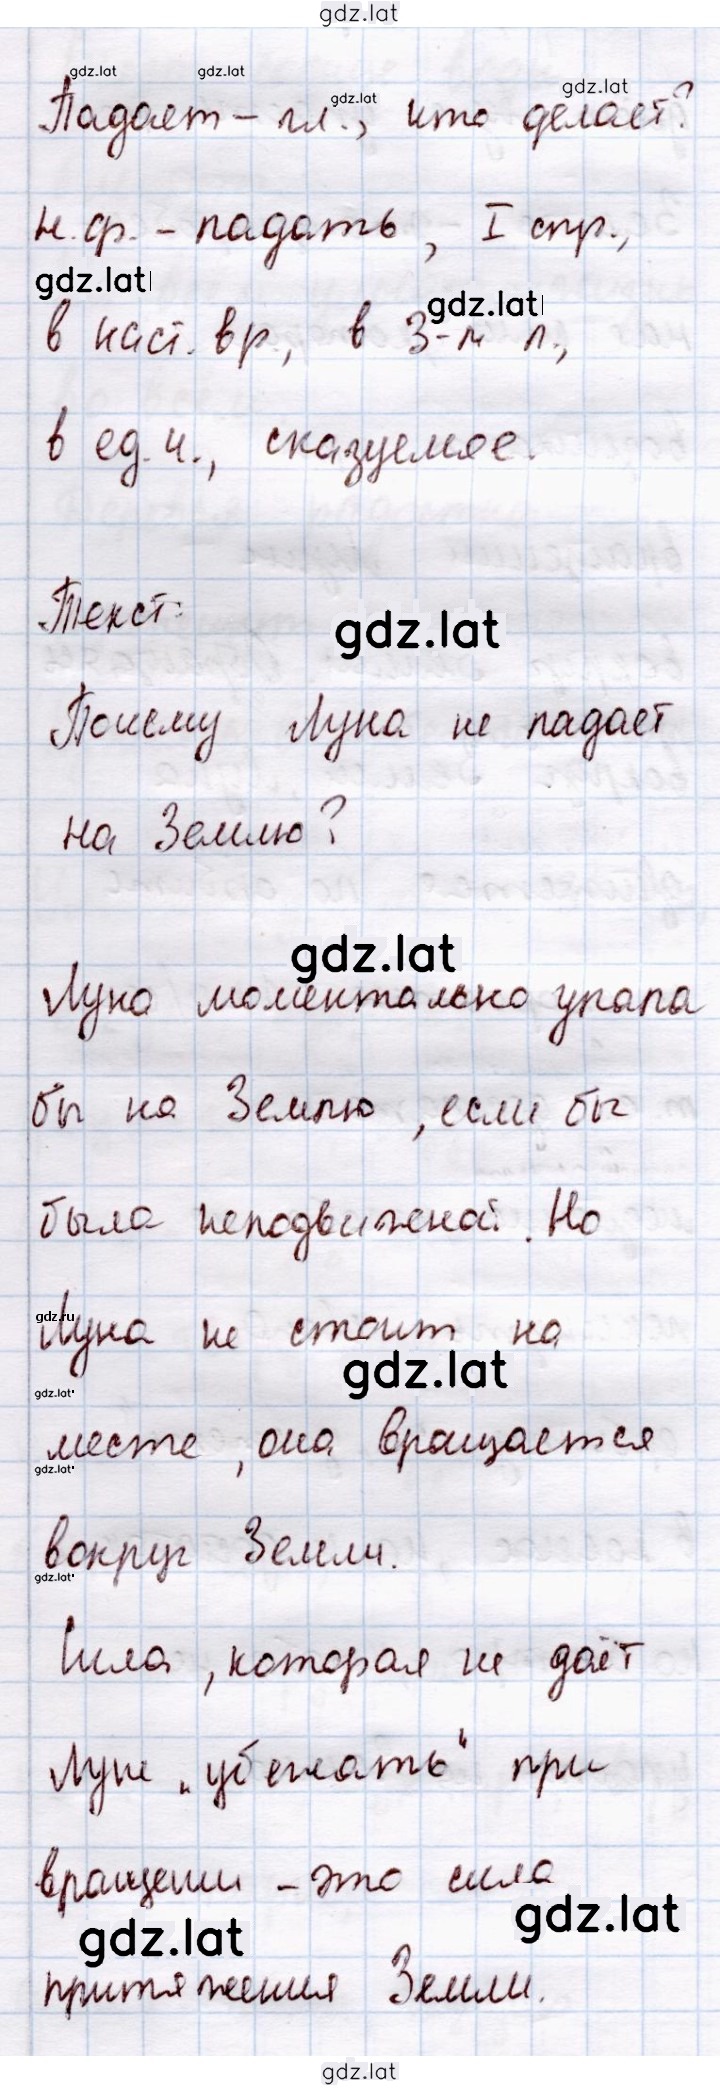 gdz.lat
gdz.lat gdz.lat
gdz.lat gdz.lat
Падает – гл., что делает?
н.ф. – падать, I спр.,
gdz.lat
gdz.lat
в наст. вр., в 3-м л.,
в ед.ч., сказуемое.
Текст:
gdz.lat
Почему Луна не падает
на Землю?
gdz.lat
Луна моментально упала
бы на Землю, если бы
была неподвижной. Но
gdz.ru
Луна не стоит на
gdz.lat
gdz.lat
месте, она вращается
gdz.lat
вокруг Земли.
gdz.lat
Сила, которая не даёт
Луне „убежать" при
вращении – это сила
gdz.lat
gdz.lat
притяжения Земли.
gdz.lat